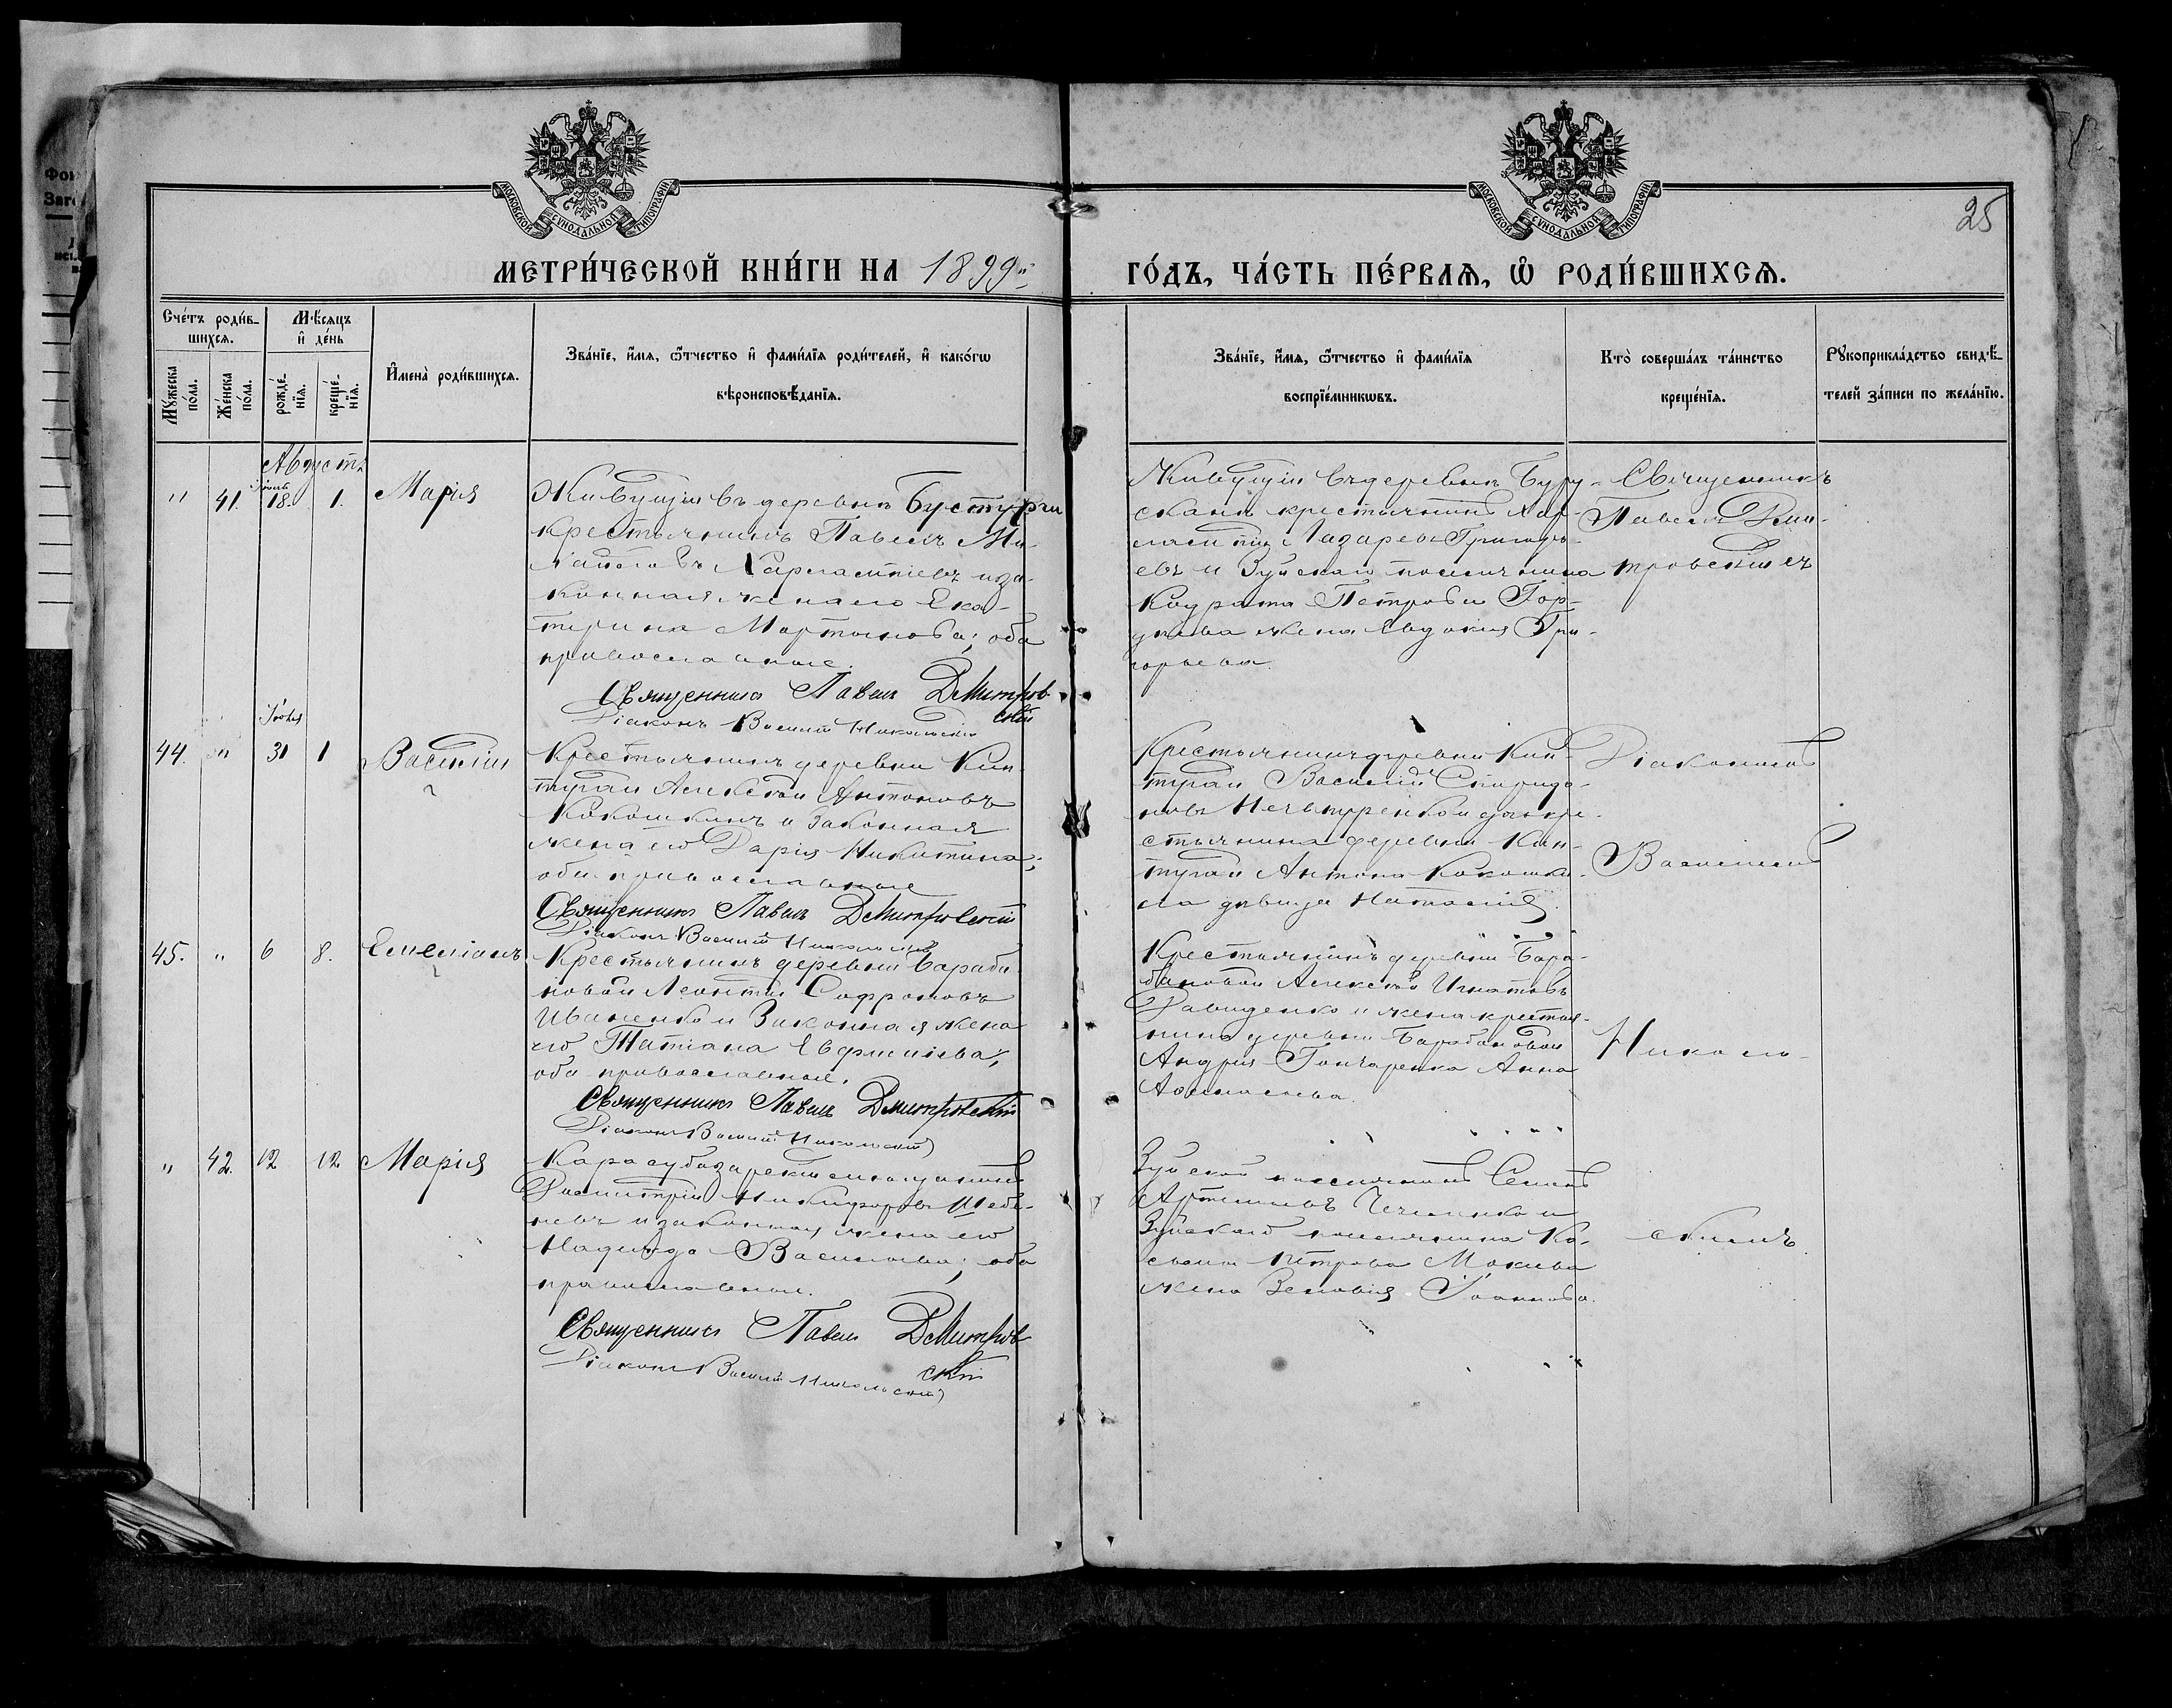 МОСКОВСКОЙ СУНОДАЛЬНОЙ ТИПОГРАФІИ
МОСКОВСКОЙ СУНОДАЛЬНОЙ ТИПОГРАФІИ
25
МЕТРИ́ЧЕСКОЙ КНИ́ГИ НА 1899й
ГО́ДЪ, ЧА́СТЬ ПЕ́РВАѦ, Ѡ҆ РОДИ́ВШИХСѦ.
Сче́тъ роди́в-
шихсѧ.
Мѣ́сѧцъ
и҆ де́нь
Мꙋ́жеска
по́ла.
Же́нска
по́ла.
рожде́-
нїѧ.
креще́-
нїѧ.
И҆мена̀ роди́вшихсѧ.
Зва́нїе, и҆́мѧ, ѻ҆́тчество и҆ фами́лїѧ роди́телей, и҆ како́гѡ
вѣроисповѣ́данїѧ.
Зва́нїе, и҆́мѧ, ѻ҆́тчество и҆ фами́лїѧ
воспрїе́мникѡвъ.
Кто̀ соверша́лъ та́инство
креще́нїѧ.
Рꙋкоприкла́дство свидѣ́-
телей за́писи по жела́нїю.
Августъ
" 41. 18. 1. Марія
Живущій въ деревнѣ Бустурчи
крестьянинъ Павелъ Ми-
хайловъ и за-
конная жена его Ека-
терина Мартынова; оба
православные.
Священникъ Павелъ Дмитров-
скій
Діаконъ Василій Никольскій
Живущій въ деревнѣ Буру-
крестьянинъ Хар-
Лазаревъ Григорь-
евъ и Зуйскаго поселянина
Кодрата Петрова Гор-
жена Евдокия Гри-
горьева.
Священникъ
Павелъ Дми-
тровскій съ
Іюля
44. " 31 1 Василій
Крестьянинъ деревни Кин-
тугай Алексѣй Антоновъ
Кокошкинъ и законная
жена его Дарія Никитина;
оба православные
Священникъ Павелъ Дмитровскій
Діаконъ Василій Никольскій
Крестьянинъ деревни Кин-
тугай Василій Спиридо-
новъ Нечипуренко и дочь кре-
стьянина деревни Кин-
тугай Антона Кокошки-
на дѣвица Наталія.
Діакономъ
Василіемъ
45. " 6 8. Емеліанъ
Крестьянинъ деревни Бараба-
новой Леонтій Софроновъ
Иваненко и законная жена
его Татіана Евфиміева;
оба православные.
Священникъ Павелъ Дмитровскій
Діаконъ Василій Никольскій
Крестьянинъ деревни Бара-
бановой Алексѣй Игнатовъ
Давиденко и жена крестья-
нина деревни Барабановой
Андрея Гончаренка Анна
Николь-
" 42. 12 12 Марія
Карасубазарскій мѣщанинъ
Димитрій Никифоровъ Шебе-
невъ и законная жена его
Надежда Васильева; оба
православные.
Священникъ Павелъ Дмитров-
скій
Діаконъ Василій Никольскій
Зуйской поселянинъ Семенъ
Артемовъ и
Зуйскаго поселянина Ко-
Петрова Мокіева
жена Зеновія Іоаннова.
скимъ